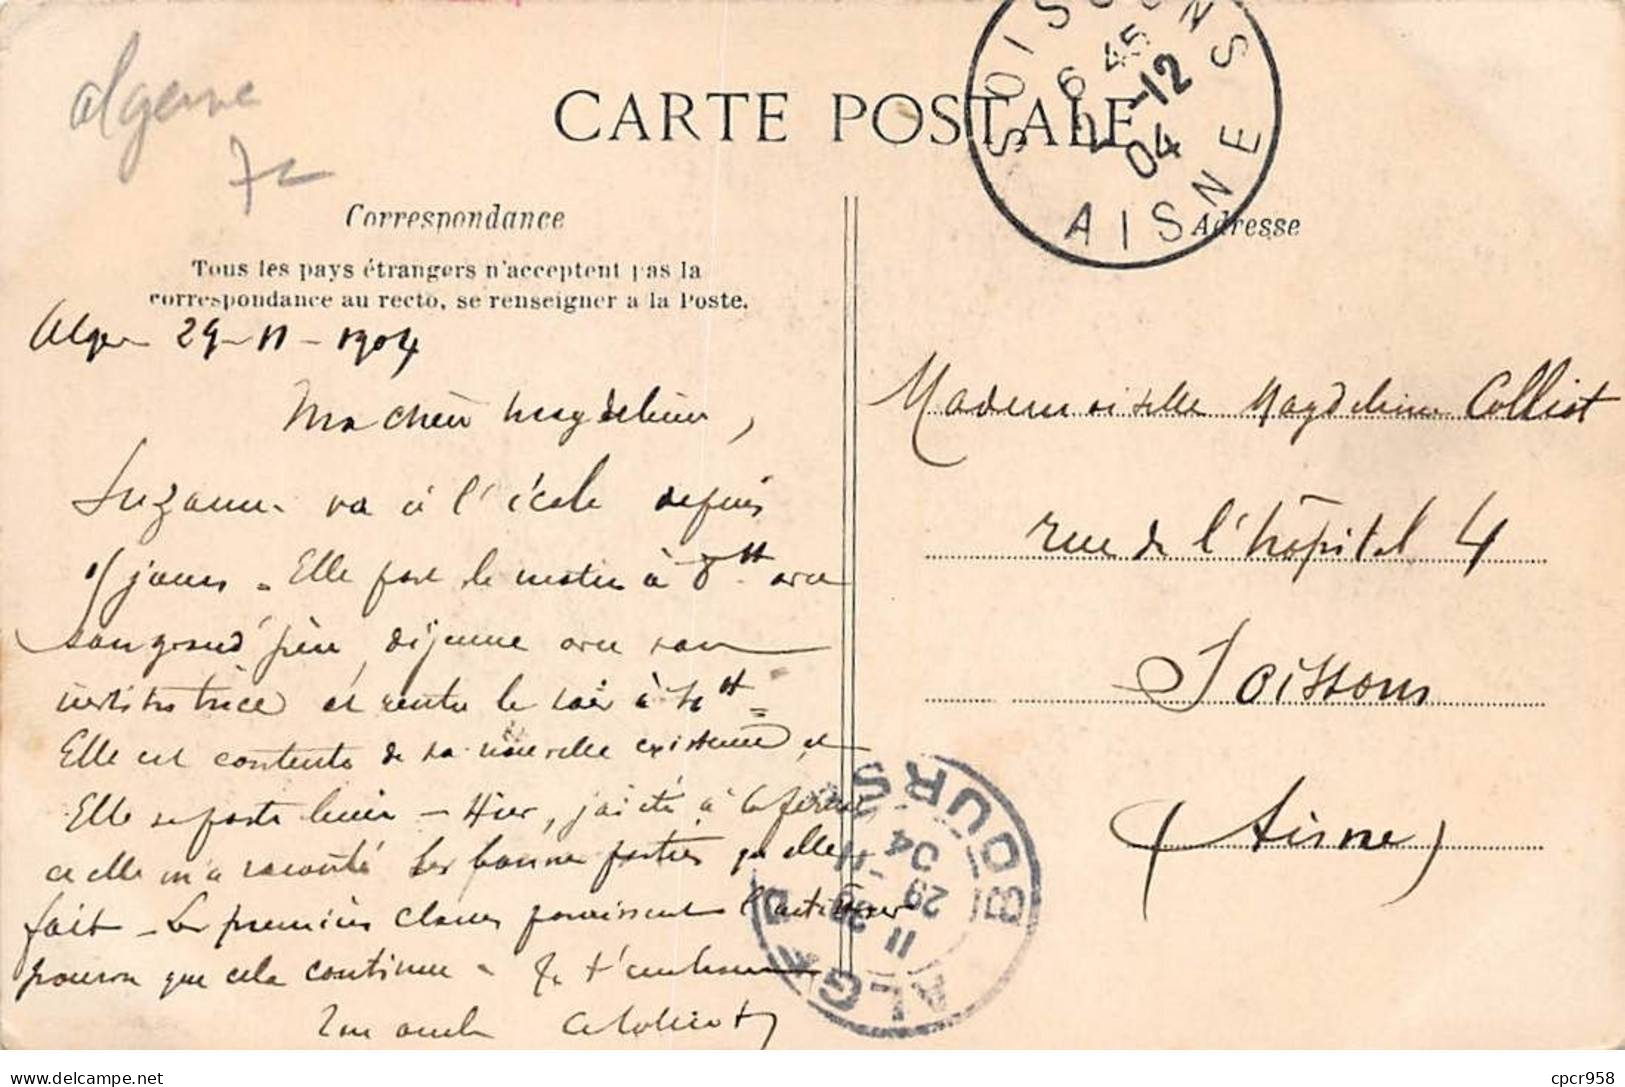 algerie
CARTE POSTALE
SOISSONS
6 45
2-12
04
AISNE
Correspondance
Adresse
Tous les pays étrangers n'acceptent pas la
correspondance au recto, se renseigner a la Poste.
Alger 29-11-1904
Ma chère Magdeleine,
Suzanne va à l'école depuis
jours. Elle part le matin à 8h avec
son grand'père, déjeune avec son
institutrice et rentre le soir à
Elle est contente de sa nouvelle existence et
Elle se porte bien - Hier, j'ai été à la ferme
et elle m'a raconté les bonnes parties qu'elle
fait - Les premières classes
pourvu que cela continue. Je t'embrasse
Ton oncle A Colliot
Mademoiselle Magdeleine Colliot
rue de l'hôpital 4
Soissons
(Aisne)
ALGER BOURSE
11
29 -11
04
delcampe.net
cpcr958